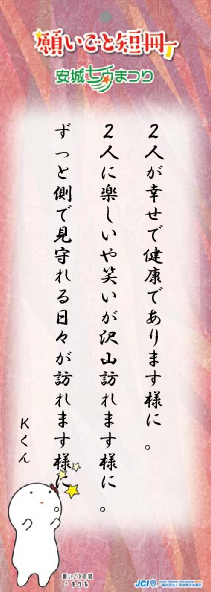 願いごと短冊
安城七夕まつり
2人が幸せで健康であります様に。
2人に楽しいや笑いが沢山訪れます様に。
ずっと側で見守れる日々が訪れます様に。
Kくん
願いごとの国
きーぼー
JCI